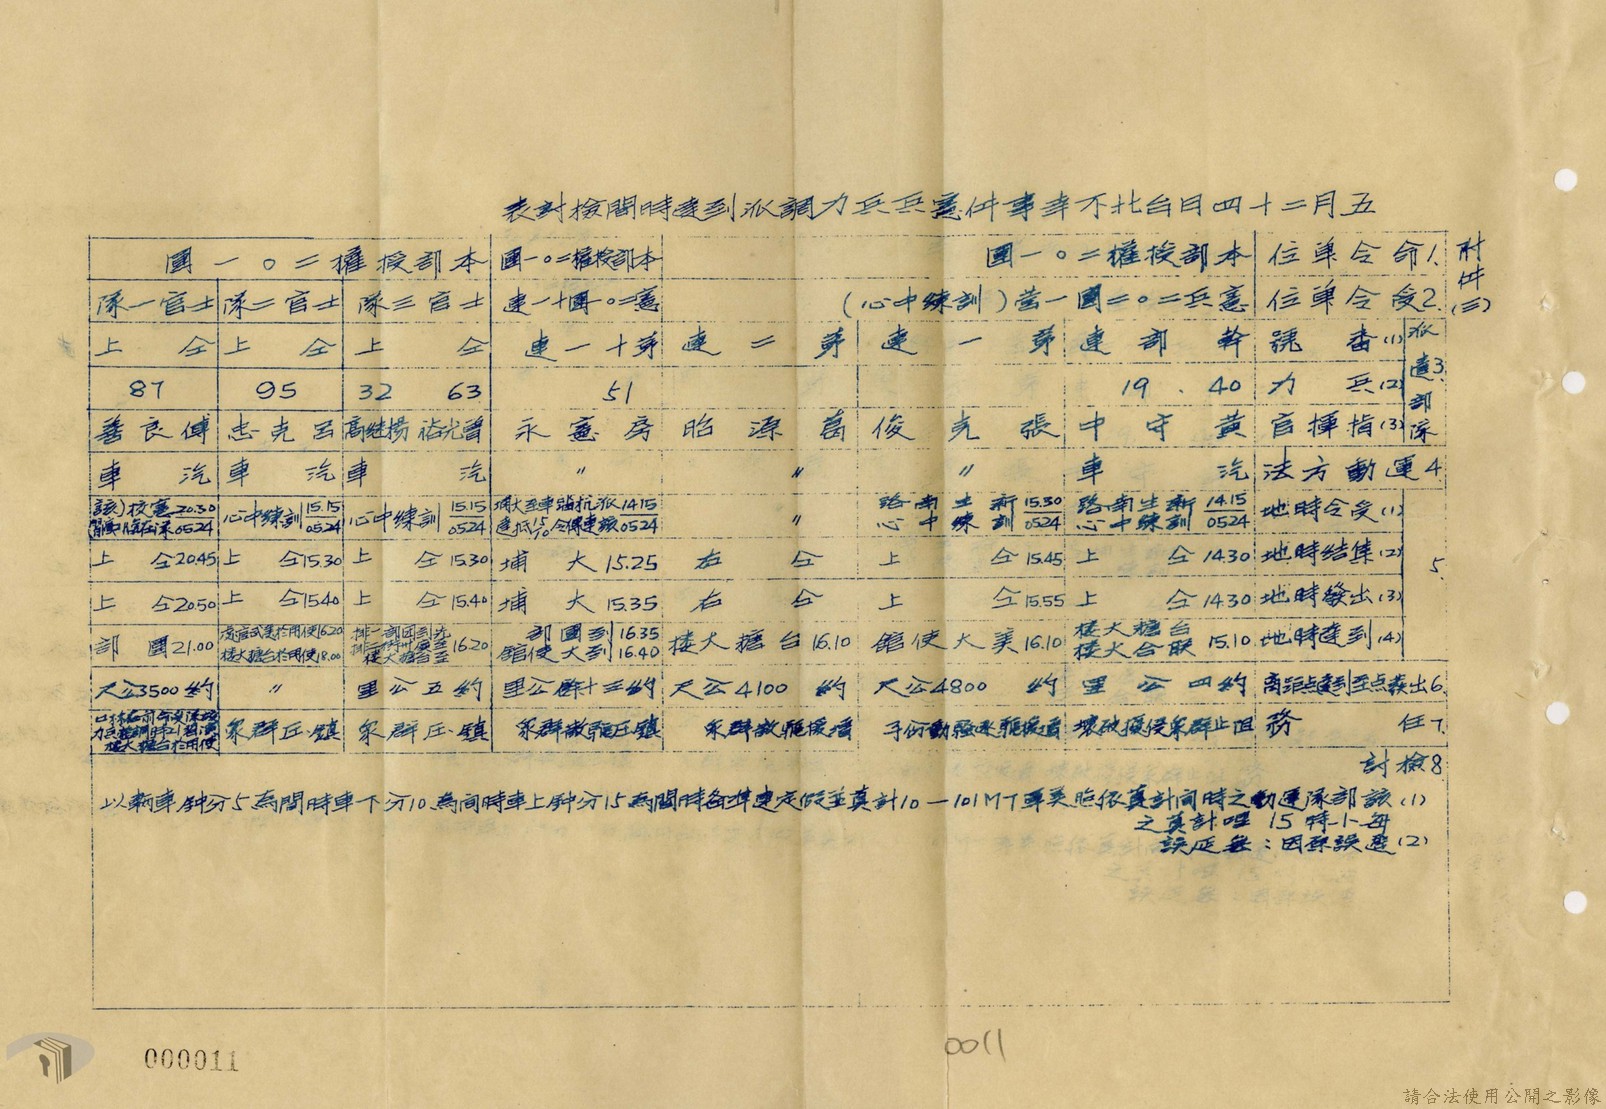 五月二十四日台北不幸事件憲兵兵力調派到達時間檢討表
附件(三)
1.命令單位 本部授權二〇一團 本部授權二〇一團 本部授權二〇一團
2.受令單位 憲兵二〇二團一營(訓練中心) 憲二〇團十一連 士官三隊 士官二隊 士官一隊
3.派遣部隊
(1)番號 幹部連 第一連 第二連 第十一連 仝上 仝上 仝上
(2)兵力 40 . 19 51 63 32 95 87
(3)指揮官 黃守中 張光俊 葛源昭 房憲永 曾光祐 楊继高 呂克忠 傅良善
4.運動方法 汽車 〃 〃 〃 汽車 汽車 汽車
5.
(1)受令時地 14.15/0524 新生南路訓練中心 15.30/0524 新生南路訓練中心 〃 14.15 0524 15.15/0524 訓練中心 15.15/0524 訓練中心 20.30/0524 憲校
(2)集結時地 14.30 仝上 15.45 仝上 仝右 15.25 大埔 15.30 仝上 15.30 仝上 20.45 仝上
(3)出發時地 14.30 仝上 15.55 仝上 仝右 15.35 大埔 15.40 仝上 15.40 仝上 20.50 仝上
(4)到達時地 15.10 台糖大樓 聯合大樓 16.10 美大使館 16.10 台糖大樓 16.35 到團部 16.40 到大使館 16.20 16.20 18.00 使用於台糖大樓 21.00 團部
6.出發点至到達点距離 約四公里 約4800公尺 約4100公尺 約三十餘公里 約五公里 〃 約3500公尺
7.任務 阻止群眾侵擾破壞 增援驅散群眾 鎮压驅散群眾 鎮压群眾 鎮压群眾 使用於台糖大樓
8.檢討
(1)該部隊運動之時間計算依照美軍MT101—10計算並假定連準備時間為15分鈡上車時間為10分下車時間為5分鈡車輛以
每小時15哩計算之
(2)遲誤原因：無延誤
000011
0011
請合法使用公開之影像